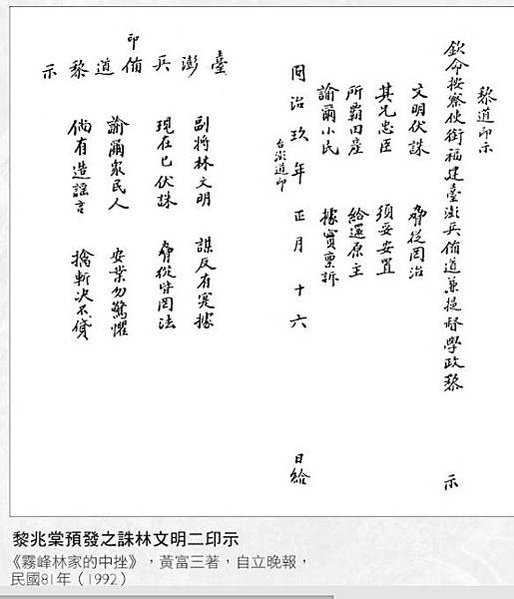 黎道印示
欽命按察使銜福建臺澎兵備道兼提督學政黎 示
文明伏誅 脅從罔治
其兄忠臣 須妥安置
所霸田產 給還原主
諭爾小民 據實稟訴
同治玖年 正月 十六 日給
台澎道印
臺澎兵備道黎示
印
副將林文明 謀反有寔據
現在已伏誅 脅從皆罔法
諭爾眾民人 安業勿驚懼
倘有造謠言 擒斬决不貸
黎兆棠預發之誅林文明二印示
《霧峰林家的中挫》，黃富三著，自立晚報，
民國81年（1992）